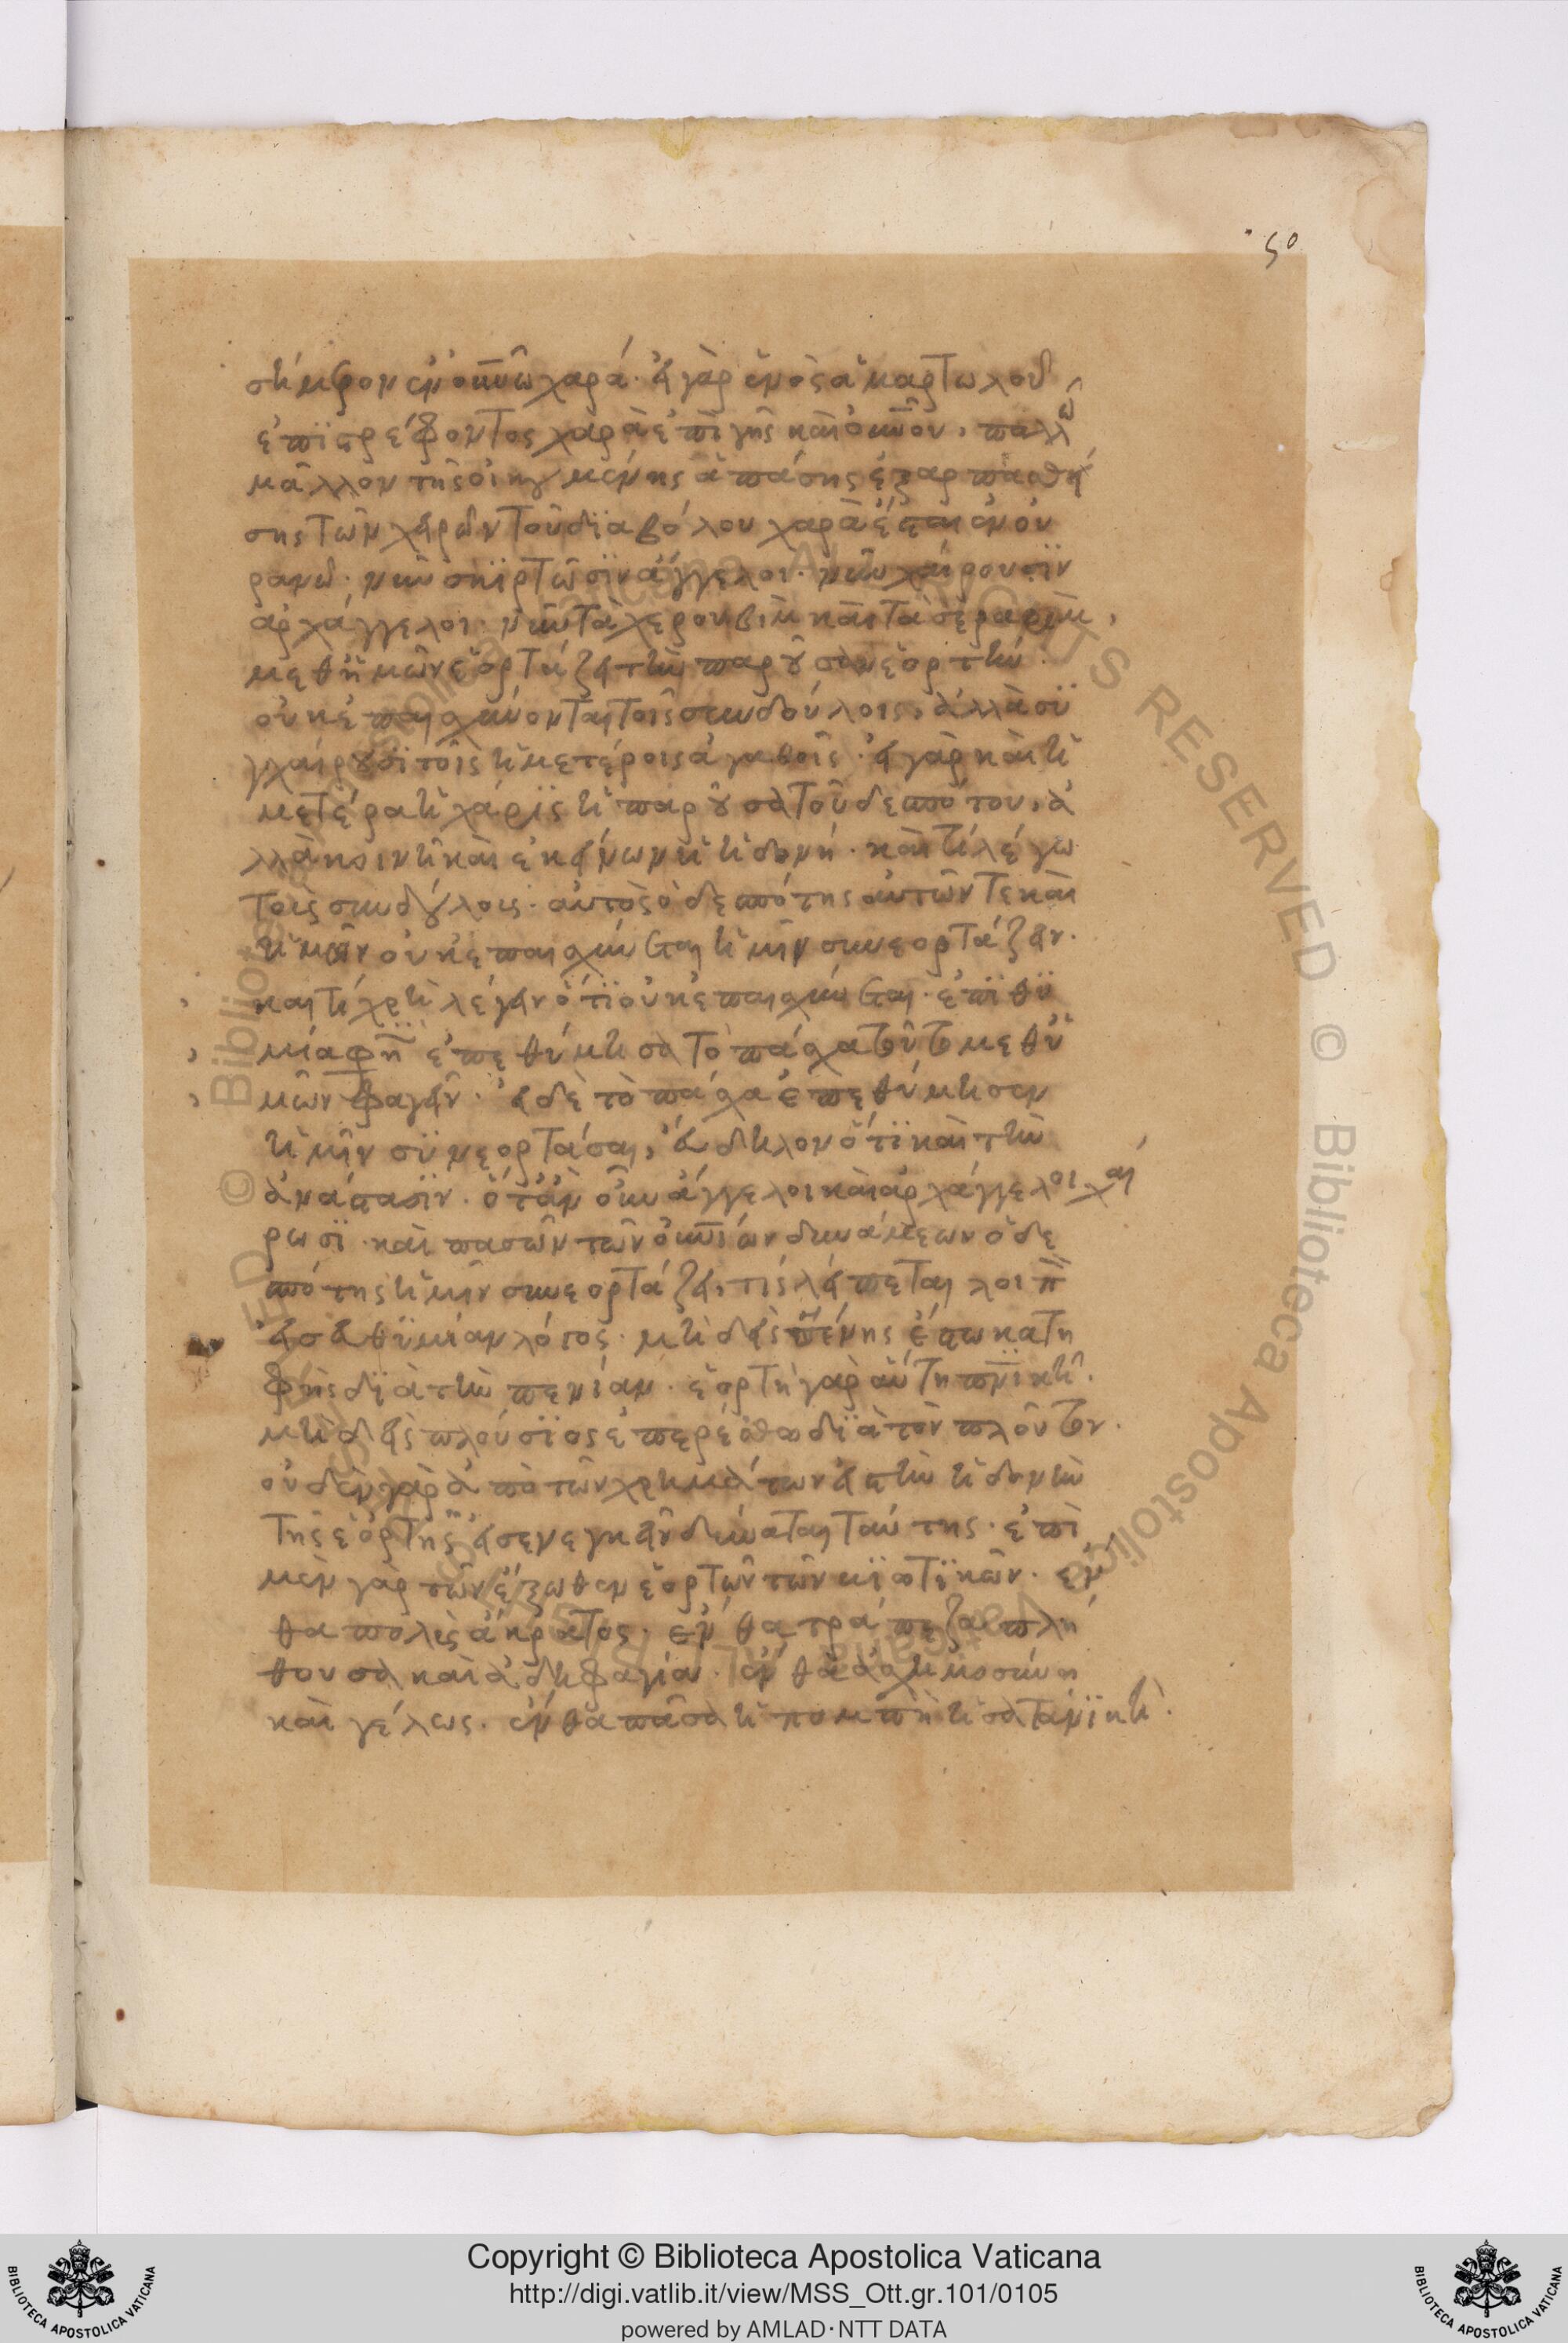 50
σήμερον ἐν οὐνῶ χαρά. εἰ γὰρ ἑνὸς ἁμαρτωλοῦ
ἐπϊστρέφοντος χαρὰ ἐπὶ γῆς καὶ οὐνοῦ, πολλῶ
μᾶλλον τῆς οἰκουμένης ἁπάσης ἐξαρπασθεί
σης τῶν χειρῶν τοῦ δϊαβόλου χαρὰ ἔσται ἐν οὐ
ρανῶ. νῦν σκϊρτῶσϊν ἄγγελοι. νῦν χαίρουσϊν
ἀρχάγγελοι. νῦν τὰ χερουβὶμ καὶ τὰ σεραφὶμ,
μεθ ἡμῶν ἑορτάζει τὴν παροῦσαν ἑορτήν.
οὐκ ἐπαισχύνονται τοῖς συνδούλοις, ἀλλὰ συ
γχαίρουσϊ τοῖς ἡμετέροις ἀγαθοῖς. εἰ γὰρ καὶ ἡ
μετέρα ἡ χάρϊς ἡ παροῦσα τοῦ δεσπότου, ἀ
λλὰ κοινὴ καὶ ἐκείνων ἡ ἡδονή. καὶ τί λέγω
τοῖς συνδούλοις. αὐτὸς ὁ δεσπότης αὐτῶν τε καὶ
ἡμῶν οὐκ ἐπαισχύνεται ἡμῖν συνεορτάζειν.
καὶ τί χρὴ λέγειν ὅτϊ οὐκ ἐπαισχύνεται. ἐπϊθυ
μία φη ἐπεθύμησα τὸ πάσχα τοῦτο μεθ ὑ
μῶν φαγεῖν. εἰ δὲ τὸ πάσχα ἐπεθύμησεν
ἡμῖν συνεορτάσαι, εὔδηλον ὅτϊ καὶ τὴν
ἀνάστασϊν. ὅταν οὖν ἄγγελοι καὶ ἀρχάγγελοι χαί
ρωσϊ. καὶ πασῶν τῶν οὐνίων δυνάμεων ὁ δε
σπότης ἡμῖν συνεορτάζει, τίς λείπεται λοιπ
εἰς ἀθυμίαν λόγος. μηδεὶς πένης ἔστω κατη
φὴς δϊὰ τὴν πενίαν. ἑορτὴ γὰρ αὕτη πνϊκή.
μηδεὶς πλούσϊος ἐπερέσθω δϊὰ τὸν πλοῦτον.
οὐδὲν γὰρ ἀπὸ τῶν χρημάτων εἰς τὴν ἡδονὴν
τῆς ἑορτῆς εἰσενεγκεῖν δύναται ταύτης. ἐπὶ
μὲν γὰρ τῶν ἔξωθεν ἑορτῶν τῶν βϊωτϊκῶν. ἔν
θα πολὺς ἄκρατος. ἔνθα τράπεζα πλή
θουσα καὶ ἀδηφαγία. ἔνθα ἀσχημοσύνη
καὶ γέλως. ἔνθα πᾶσα ἡ πομπὴ ἡ σατανϊκή.
Copyright © Biblioteca Apostolica Vaticana
http://digi.vatlib.it/view/MSS_Ott.gr.101/0105
powered by AMLAD·NTT DATA